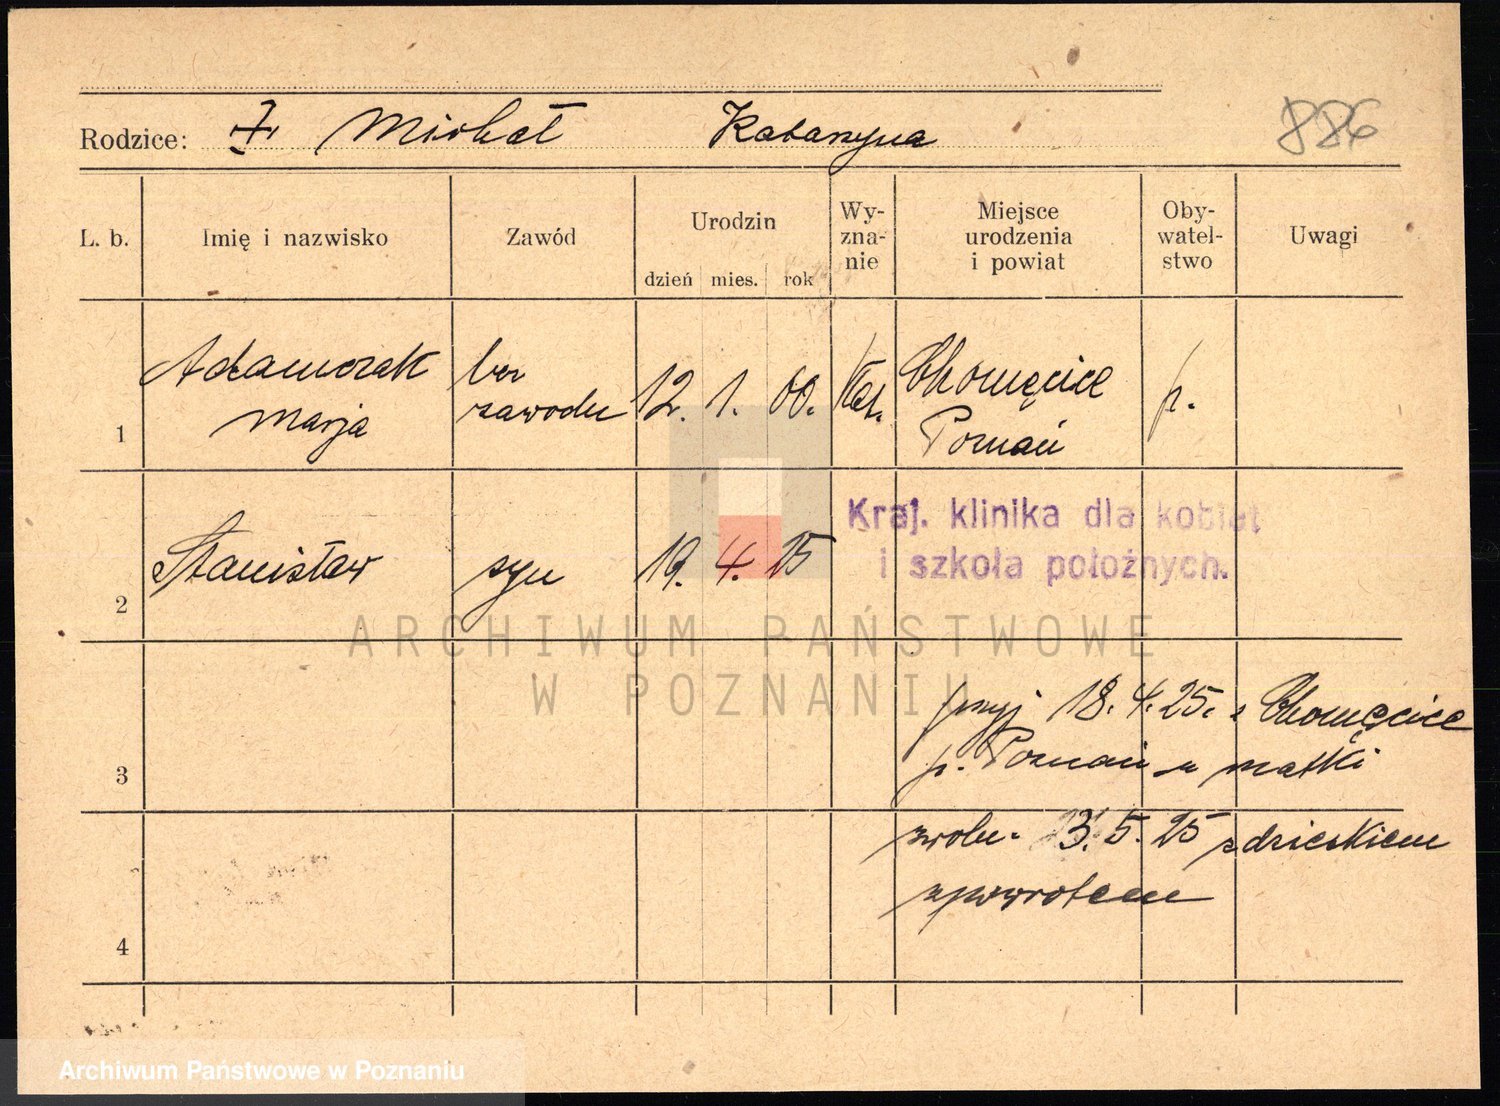 Rodzice: Michał Katarzyna
886
L. b. Imię i nazwisko Zawód Urodzin Wy- zna- nie Miejsce urodzenia i powiat Oby- watel- stwo Uwagi
dzień mies. rok
1 Adamczak Marja bez zawodu 12. 1. 00. Kat. Chomęcice Poznań p.
2 Stanisław syn 19. 4. 25
Kraj. klinika dla kobiet
i szkoła położnych.
ARCHIWUM PAŃSTWOWE
W POZNANIU
przyj 18.4.25. z Chomęcice
3 p. Poznań u matki
3.5.25 z dzieckiem
zpowrotem
4
Archiwum Państwowe w Poznaniu